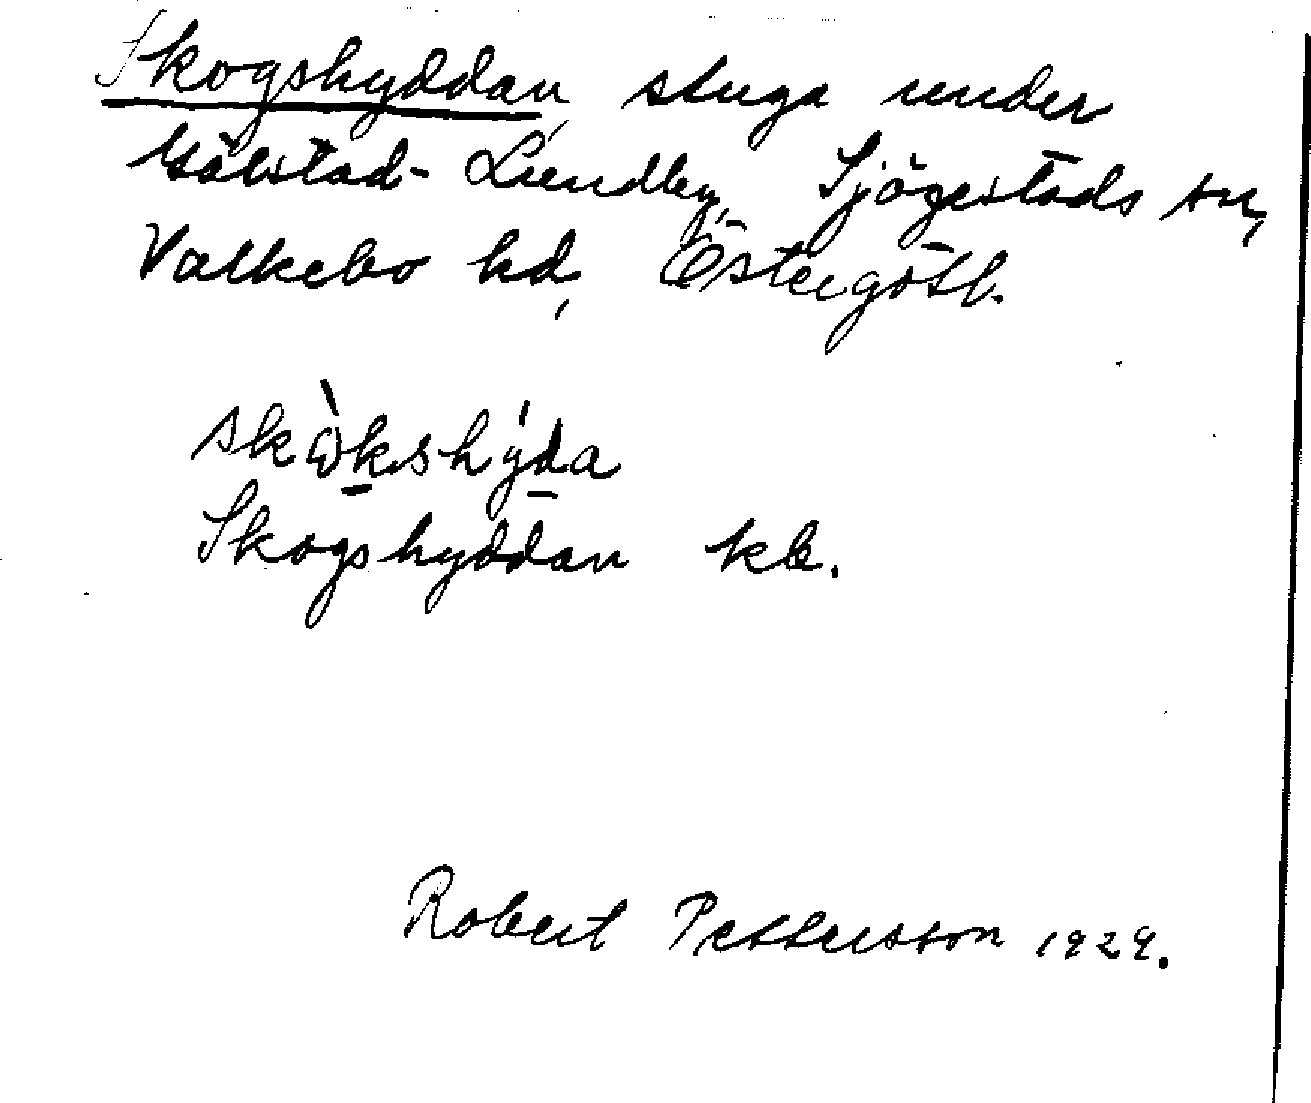 Skogshyddan, stuga under
Gälstad-Lundby, Sjögestads sn,
Valkebo hd, Östergötl.
skὼkshýda
Skogshyddan kb.
Robert Pettersson 1929.